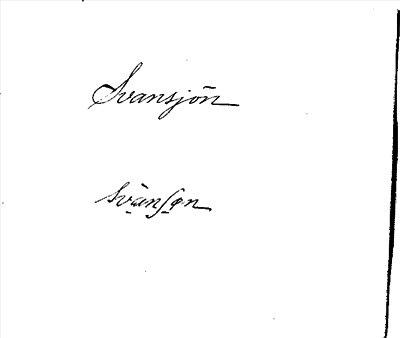 Svansjön
svànʃøn